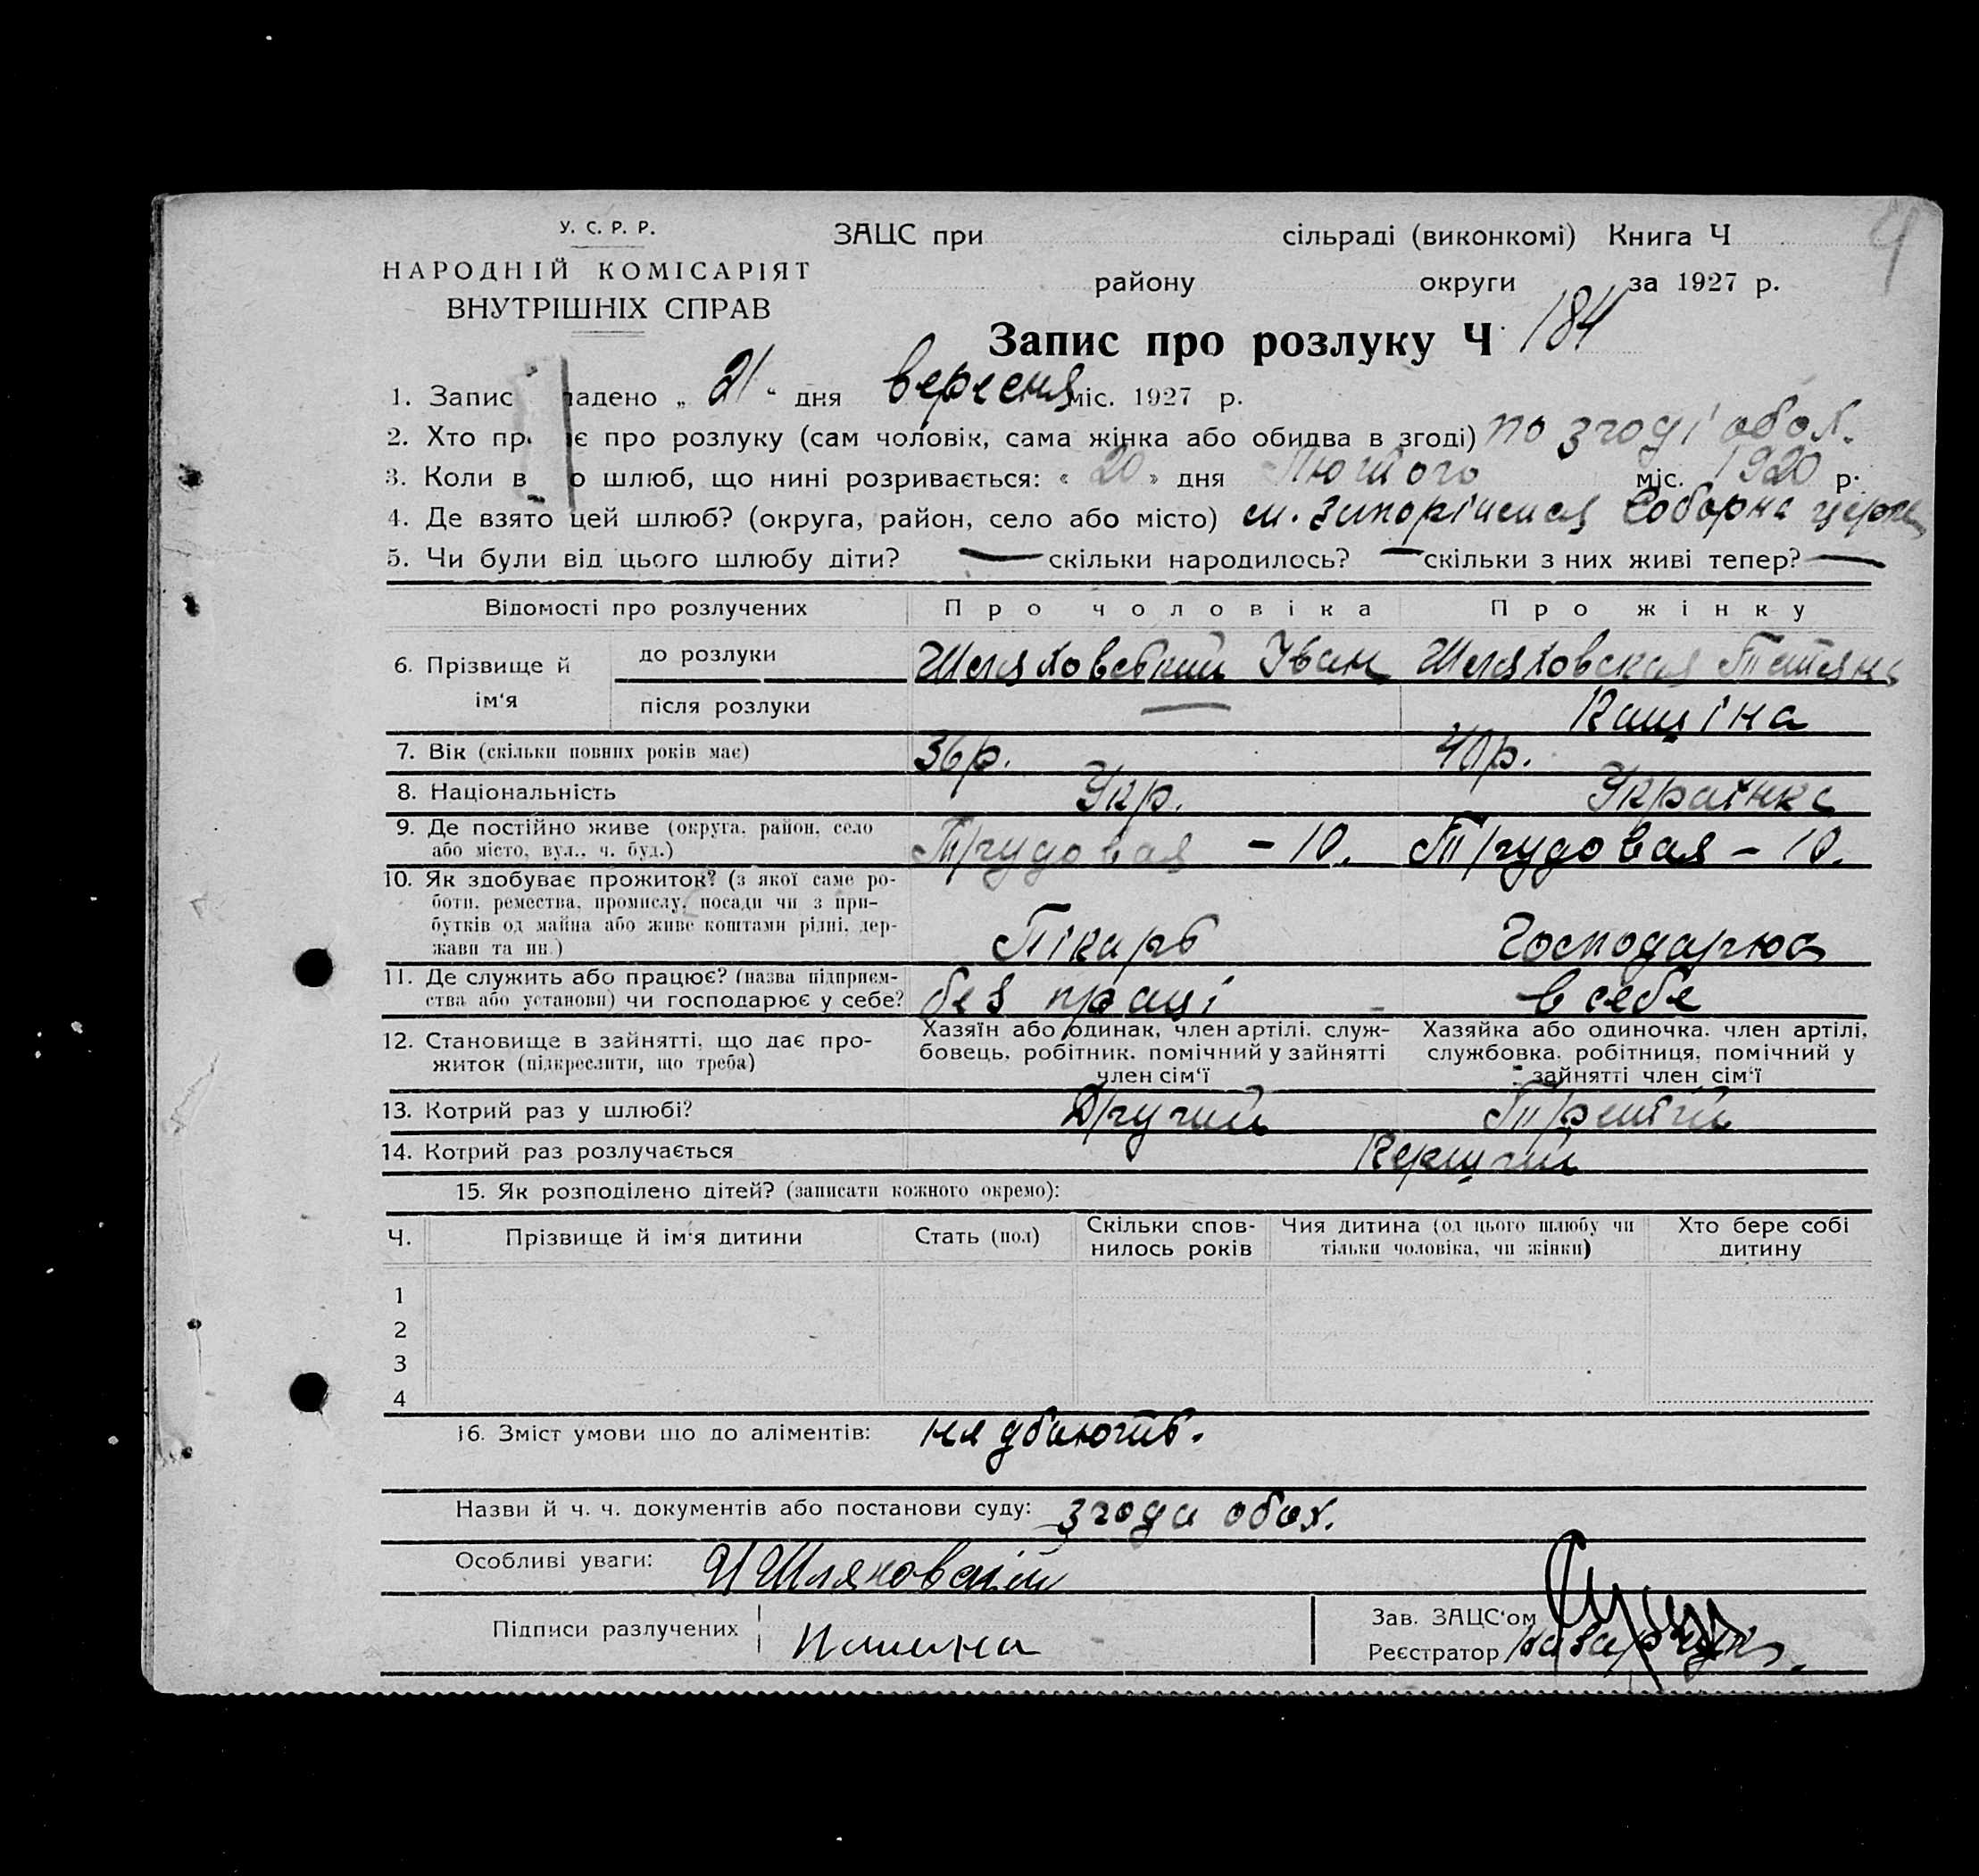 9
У. С. Р. Р.
НАРОДНІЙ КОМІСАРІЯТ
ВНУТРІШНІХ СПРАВ
ЗАЦС при сільраді (виконкомі) Книга Ч
району округи за 1927 р.
Запис про розлуку Ч. 184
1. Запис ладено „ 21 “ дня вересня міс. 1927 р.
2. Хто пр є про розлуку (сам чоловік, сама жінка або обидва в згоді) по згоді обох.
3. Коли в о шлюб, що нині розривається: « 20 » дня Лютого міс. 1920 р.
4. Де взято цей шлюб? (округа, район, село або місто) м. Соборна
5. Чи були від цього шлюбу діти? — скільки народилось? — скільки з них живі тепер? —
Відомості про розлучених Про чоловіка Про жінку
6. Прізвище й ім‘я до розлуки Шляховський Іван Шляховская Татяна
після розлуки —
7. Вік (скільки повних років має) 36 р. 40 р.
8. Національність Укр. Українка
9. Де постійно живе (округа, район, село
або місто, вул., ч. буд.) Трудовая – 10. Трудовая – 10.
10. Як здобуває прожиток? (з якої саме ро-
боти, ремества, промислу, посади чи з при-
бутків од майна або живе коштами рідні, дер-
жави та ин.) Пікарь Господарює
11. Де служить або працює? (назва підприєм-
ства або установи) чи господарює у себе? без праці в себе
12. Становище в зайнятті, що дає про-
житок (підкреслити, що треба)
Хазяїн або одинак, член артілі, служ-
бовець, робітник, помічний у зайнятті
член сім‘ї
Хазяйка або одиночка, член артілі,
службовка, робітниця, помічний у
зайнятті член сім‘ї
13. Котрий раз у шлюбі? Другий Третій
14. Котрий раз розлучається Перший
15. Як розподілено дітей? (записати кожного окремо):
Ч. Прізвище й ім‘я дитини Стать (пол) Скільки спов-
нилось років Чия дитина (од цього шлюбу чи
тільки чоловіка, чи жінки) Хто бере собі
дитину
1
2
3
4
16. Зміст умови що до аліментів: не дбають.
Назви й ч. ч. документів або постанови суду: згода обох.
Особливі уваги: И Шляховский
Підписи разлучених
Зав. ЗАЦС‘ом
Реєстратор